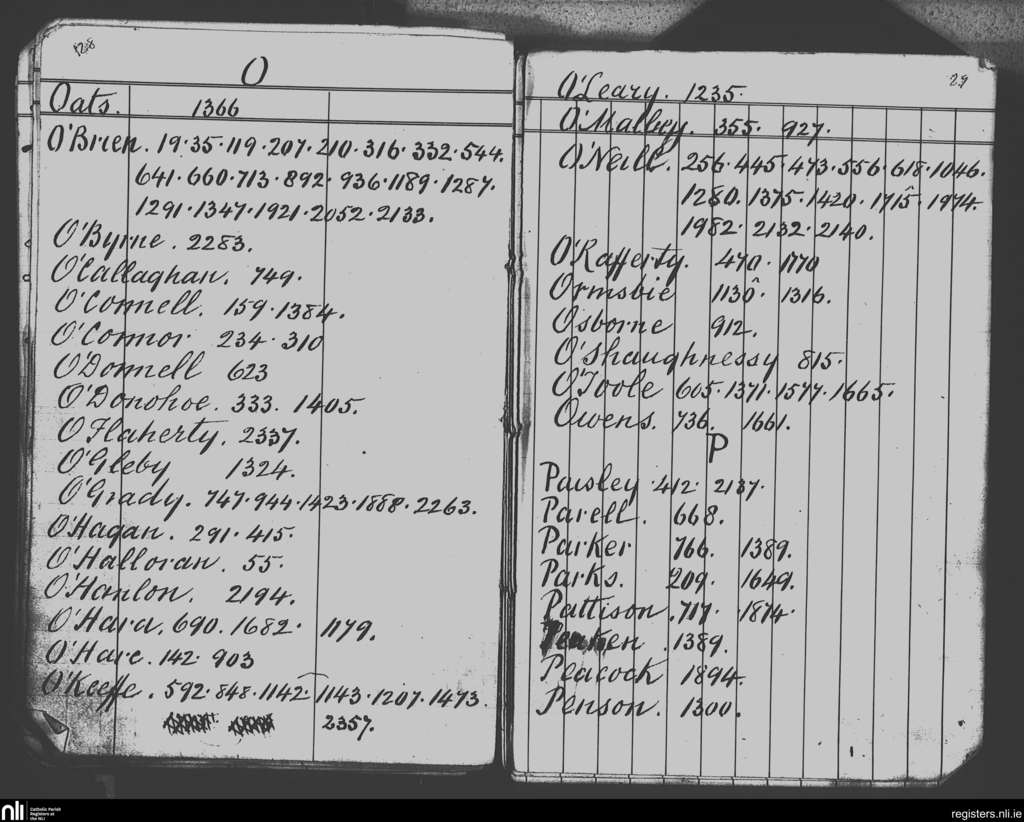 128
O
Oats. 1366
O'Brien. 19·35·119·207·210·316·332·544.
641·660·713·892·936·1189·1287.
1291·1347·1921·2052·2133.
O'Byrne. 2283.
O'Callaghan. 749.
O'Connell. 159·1384.
O'Connor 234·310
O'Donnell 623
O'Donohoe. 333. 1405.
O'Flaherty. 2337.
O'Gleby 1324.
O'Grady. 747·944·1423·1888·2263.
O'Hagan. 291·415.
O'Halloran. 55.
O'Hanlon. 2194.
O'Hara. 690. 1682· 1179.
O'Hare. 142· 903
O'Keeffe. 592·848·1142·1143·1207·1473.
2357.
29
O'Leary. 1235.
O'Malley. 355· 927.
O'Neill. 256·445·473·556·618·1046.
1280. 1375·1420. 1715· 1974.
1982·2132·2140.
O'Rafferty. 470· 1770
Ormsbie 1130· 1316.
Osborne 912.
O'Shaughnessy 815·
O'Toole 605·1371·1577·1665.
Owens. 736. 1661.
P
Paisley·412· 2137·
Parell. 668.
Parker 766. 1389.
Parks. 209. 1649.
Pattison. 717· ·1874·
1389.
Peacock 1894.
Penson. 1300.
nli
Catholic Parish
Registers at
the NLI
registers.nli.ie